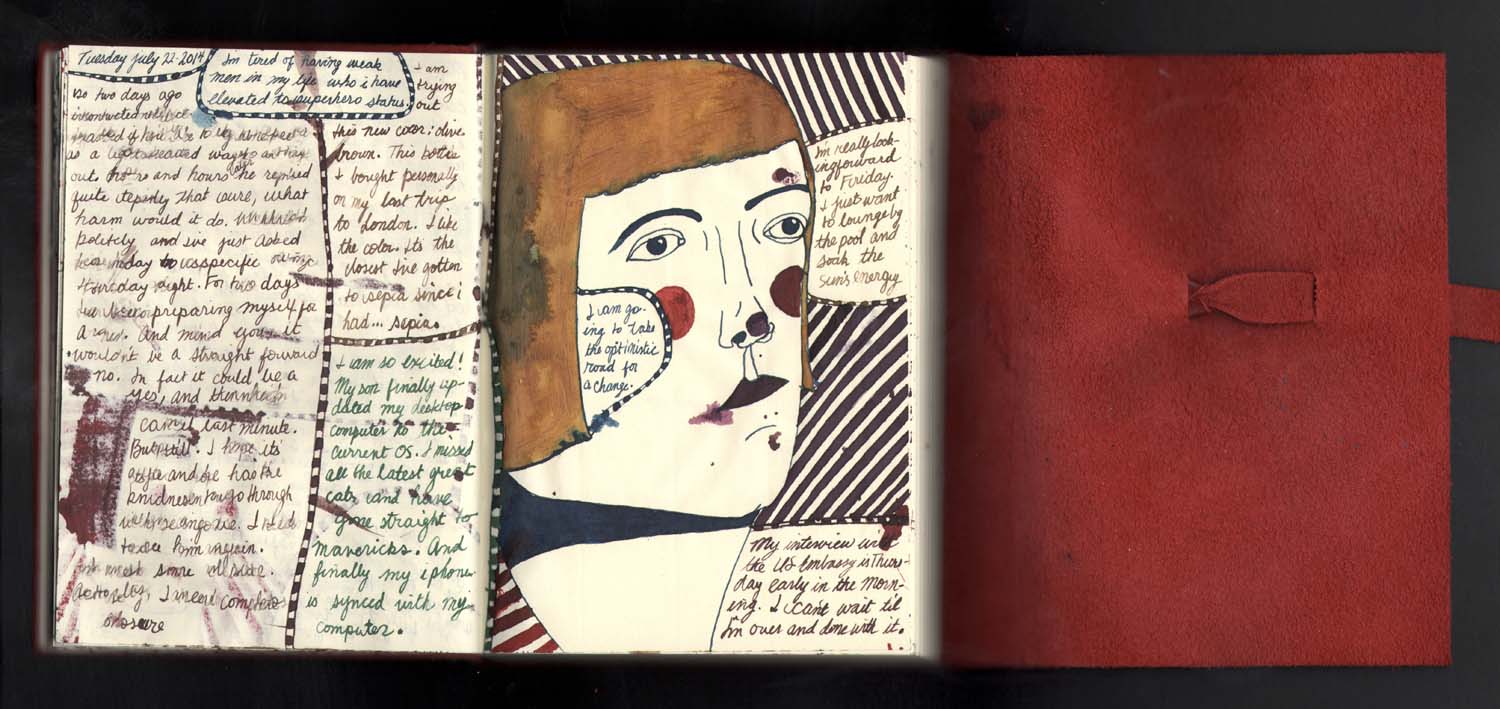 Tuesday July 22-2014
So two days ago
as a light hearted way
out and hours later he replied
quite that sure, what
harm would it do.
politely and i've just asked
to specific
thursday night. For two days
I've been preparing myself for
a And mind you it
wouldn't be a straight forward
no. In fact it could be a
yes, and then
cancel last minute.
But still. I hope it's
a yes and he has the
through
with seeing me. I need
to see him again.
I need complete
closure
I'm tired of having weak
men in my life who i have
elevated to superhero status.
I am
trying
out
this new color: olive
brown. This bottle
I bought personally
on my last trip
to London. I like
the color. Its the
closest I've gotten
to sepia since i
had... sepia.
I am so excited!
My son finally up-
dated my desktop
computer to the
current OS. I missed
all the latest great
cats and have
gone straight to
mavericks. And
finally my iphone
is synced with my
computer.
I'm really look-
ing forward
to Friday.
I just want
to lounge by
the pool and
soak the
sun's energy
I am go-
ing to take
the optimistic
road for
a change.
My interview with
the US embassy is Thurs-
day early in the morn-
ing. I cant wait til
I'm over and done with it.